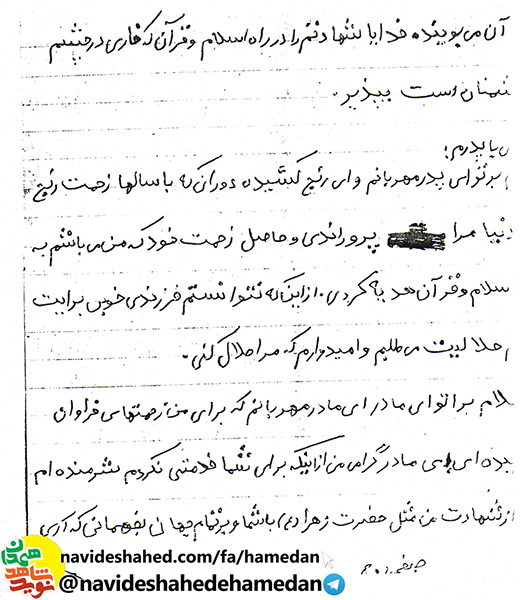 آن می پوینده خدایا شهادتم را در راه اسلام و قرآن که خاری در چشم
شمنان است بپذیر.
ی با پدرم:
م بر تو ای پدر مهربانم و ای رنج کشیده دورانی که با سالها زحمت رنج
دنیا مرا پروراندی و حاصل زحمت خود که من می باشم به
سلام و قرآن هدیه کردی. از اینکه نتوانستم فرزندی خوبی برایت
م حلالیت می طلبم و امیدوارم که مرا حلال کنی.
لام بر تو ای مادر ای مادر مهربانم که برای من زحمتهای فراوان
یده ای مادر گرامی من از اینکه برای شما خدمتی نکردم شرمنده ام
از شهادت من مثل حضرت زهرا (س) باش و بر تمام جهان بفهمانی که آری
صفحه
navideshahed.com/fa/hamedan
@navideshahedehamedan
نوید شاهد همدان